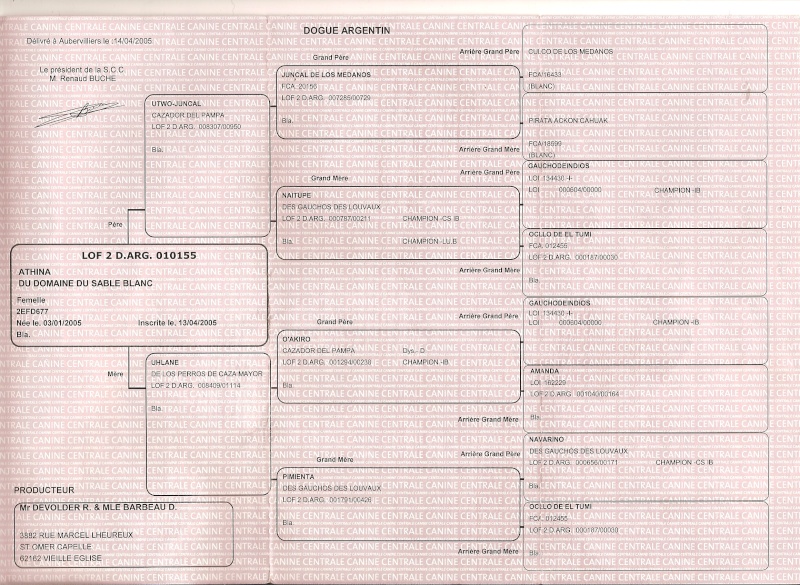 DOGUE ARGENTIN
Délivré à Aubervilliers le :14/04/2005
Le président de la S.C.C.
M. Renaud BUCHE
Père
LOF 2 D.ARG. 010155
ATHINA
DU DOMAINE DU SABLE BLANC
Femelle
2EFD677
Née le: 03/01/2005 Inscrite le: 13/04/2005
Bla.
Mère
PRODUCTEUR
Mr DEVOLDER R. & MLE BARBEAU D.
3882 RUE MARCEL LHEUREUX
ST OMER CAPELLE
62162 VIEILLE EGLISE
UTWO-JUNCAL
CAZADOR DEL PAMPA
LOF 2 D.ARG. 008307/00950
Bla.
UHLANE
DE LOS PERROS DE CAZA MAYOR
LOF 2 D.ARG. 008409/01114
Bla.
Grand Père
JUNCAL DE LOS MEDANOS
FCA. 20156
LOF 2 D.ARG. 007285/00729
Bla.
Grand Mère
NAITUPE
DES GAUCHOS DES LOUVAUX
LOF 2 D.ARG. 000787/00211 CHAMPION -CS IB
Bla. CHAMPION -LU.B
Grand Père
O'AKIRO
CAZADOR DEL PAMPA Dys.- D
LOF 2 D.ARG. 001294/00238 CHAMPION -IB
Bla.
Grand Mère
PIMIENTA
DES GAUCHOS DES LOUVAUX
LOF 2 D.ARG. 001791/00426
Bla.
Arrière Grand Père
CULCO DE LOS MEDANOS
FCA/16433
(BLANC)
Arrière Grand Mère
PIRATA ACKON CAHUAK
FCA/18599
(BLANC)
Arrière Grand Père
GAUCHODEINDIOS
LOI 134430 -I-
LOI 000604/00000 CHAMPION -IB
Arrière Grand Mère
OCLLO DE EL TUMI
FCA. 012455
LOF 2 D.ARG. 000187/00030
Bla.
Arrière Grand Père
GAUCHODEINDIOS
LOI 134430 -I-
LOI 000604/00000 CHAMPION -IB
Arrière Grand Mère
AMANDA
LOI 162229
LOF 2 D.ARG. 001040/00164
Bla.
Arrière Grand Père
NAVARINO
DES GAUCHOS DES LOUVAUX
LOF 2 D.ARG. 000656/00171 CHAMPION -CS IB
Bla.
Arrière Grand Mère
OCLLO DE EL TUMI
FCA. 012455
LOF 2 D.ARG. 000187/00030
Bla.